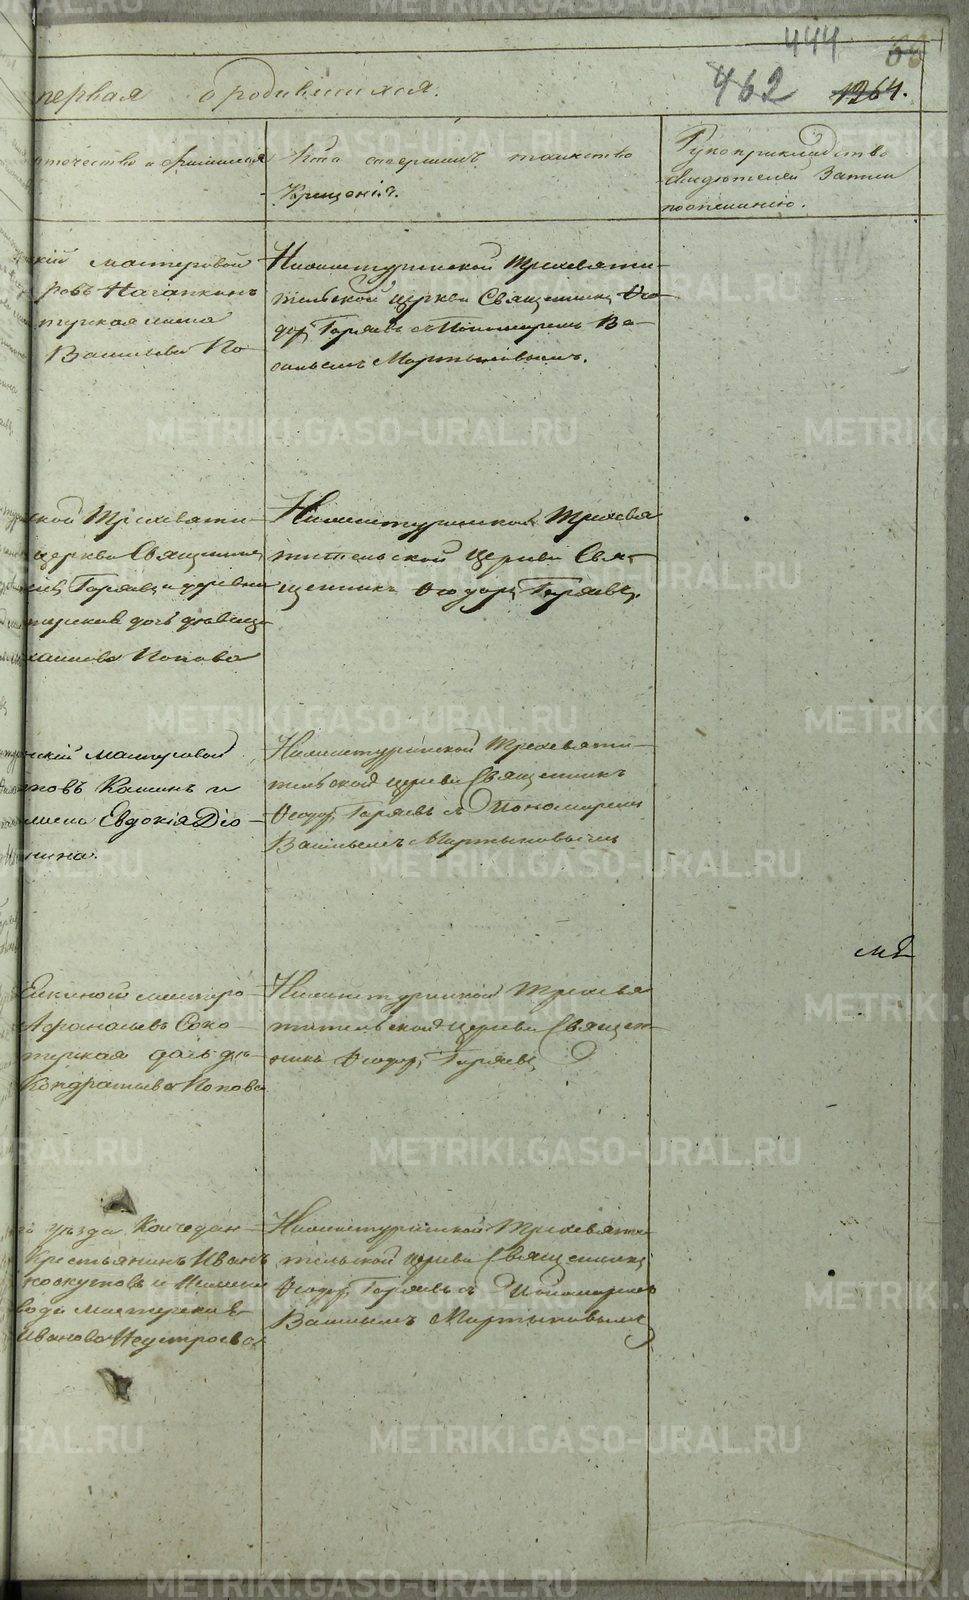 444
462
1264.
первая о родившихся.
отчество и фамилия
Кто совершалъ таинство
Крещенія.
Рукоприкладство
свидѣтелей записи
по желанію.
скій мастеровой
ровъ
Васильева По
Нижнетуринской Трехсвяти-
тельской церкви Священникъ Ѳео-
доръ Горяевъ съ Пономаремъ Ва-
сильемъ Мартыновымъ.
ской Трехсвяти-
церкви Священника
Горяева и
терская дочь девица
Попова
Нижнетуринской Трехсвя
тительской церкви Свя-
щенникъ Ѳеодоръ Горяевъ.
скій мастеровой
новъ Кошинъ и
Евдокія Діо-
нина.
Нижнетуринской Трехсвяти-
тельской церкви Священникъ
Ѳеодоръ Горяевъ съ Пономаремъ
Васильемъ Мартыновымъ
мастеро-
Афанасьевъ Соко-
терская дочь дѣ-
Кондратьева Попова
Нижнетуринской Трехсвя
тительской церкви Священ-
никъ Ѳеодоръ Горяевъ
уѣзда
Крестьянинъ Иванъ
вода мастерская
Иванова
Нижнетуринской Трехсвяти
тельской церкви Священникъ
Ѳеодоръ Горяевъ съ Пономаремъ
Васильемъ Мартыновымъ
METRIKI.GASO-URAL.RU